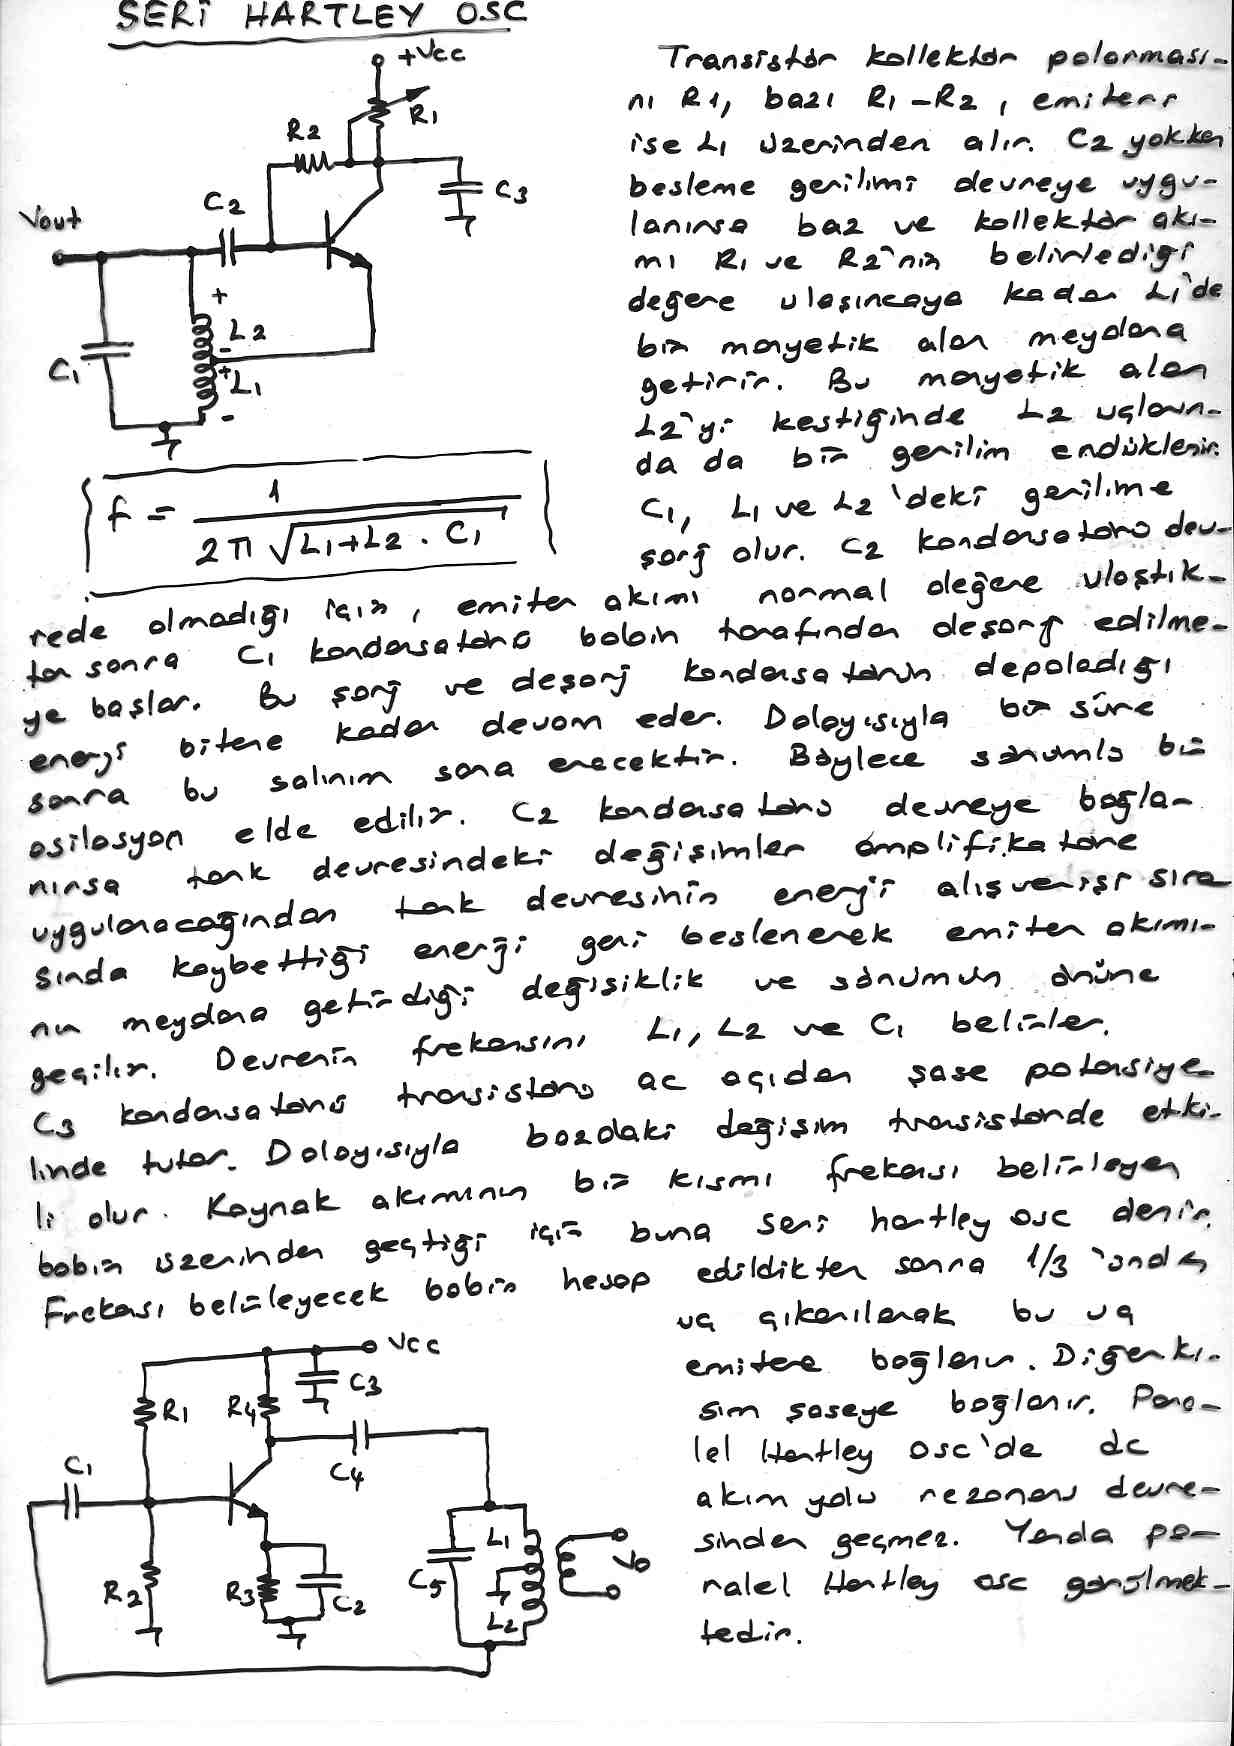 SERİ HARTLEY OSC
+Vcc
R1
R2
C3
C2
Vout
+
L2
-
+
L1
-
C1
f = 1 / 2π √L1+L2 . C1
Transistör kollektör polarması-
nı R1, bazı R1-R2, emiteri
ise L1 üzerinden alır. C2 yokken
besleme gerilimi devreye uygu-
lanırsa baz ve kollektör akı-
mı R1 ve R2'nin belirlediği
değere ulaşıncaya kadar L1'de
bir manyetik alan meydana
getirir. Bu manyetik alan
L2'yi kestiğinde L2 uçların-
da da bir gerilim endüklenir.
C1, L1 ve L2'deki gerilime
şarj olur. C2 kondansatörü dev-
rede olmadığı için, emiter akımı normal değere ulaştık-
tan sonra C1 kondansatörü bobin tarafından deşarj edilme-
ye başlar. Bu şarj ve deşarj kondansatörün depoladığı
enerji bitene kadar devam eder. Dolayısıyla bir süre
sonra bu salınım sona erecektir. Böylece sönümlü bir
osilasyon elde edilir. C2 kondansatörü devreye bağla-
nırsa tank devresindeki değişimler amplifikatöre
uygulanacağından tank devresinin enerji alışverişi sıra
sında kaybettiği enerji geri beslenerek emiter akımı-
nın meydana getirdiği değişiklik ve sönümün önüne
geçilir. Devrenin frekansını L1, L2 ve C1 belirler.
C3 kondansatörü transistörü ac açıdan şase potansiye-
linde tutar. Dolayısıyla bazdaki değişim transistörde etki-
li olur. Kaynak akımının bir kısmı frekansı belirleyen
bobin üzerinden geçtiği için buna seri hartley osc denir.
Frekansı belirleyecek bobin hesap edildikten sonra 1/3 'ünden
uç çıkarılarak bu uç
emitere bağlanır. Diğer kı-
sım şaseye bağlanır. Para-
lel Hartley osc'de dc
akım yolu rezonans devre-
sinden geçmez. Yanda pa-
ralel Hartley osc görülmek-
tedir.
Vcc
R1
R4
C3
C1
C4
R2
R3
C2
C5
L1
L2
Vo